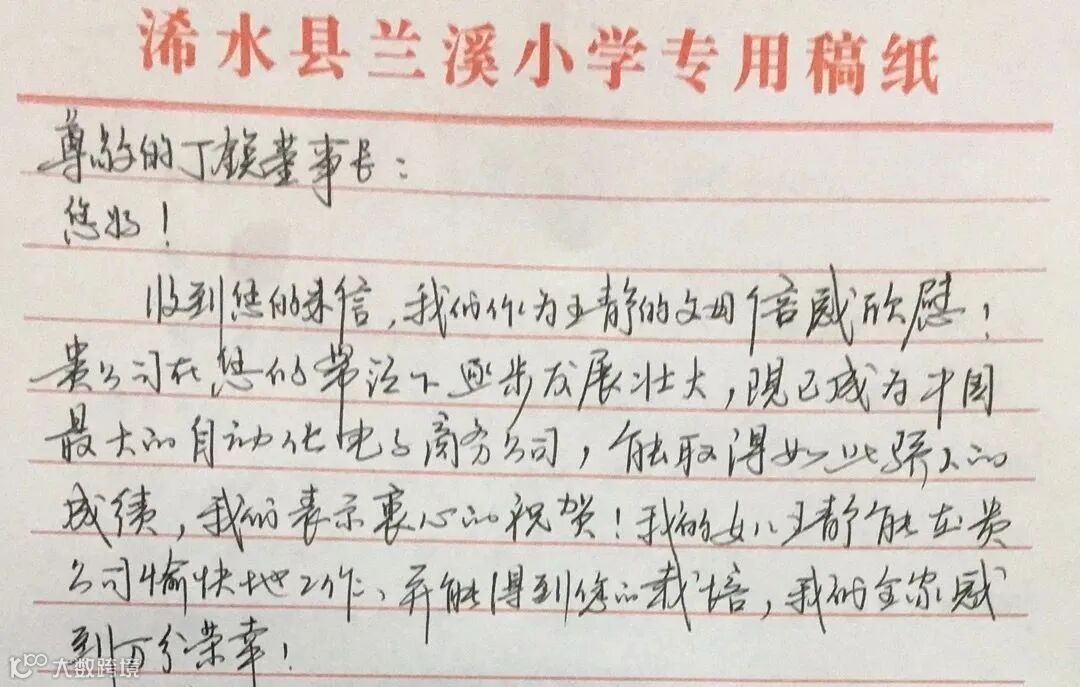 浠水县兰溪小学专用稿纸
尊敬的丁董事长：
您好！
收到您的来信，我们作为王静的父母倍感欣慰！
贵公司在您的带领下逐步发展壮大，现已成为中国
最大的自动化电子商务公司，能取得如此骄人的
成绩，我们表示衷心的祝贺！我的女儿王静能在贵
公司愉快地工作、并能得到您的栽培，我们全家感
到万分荣幸！
大数跨境